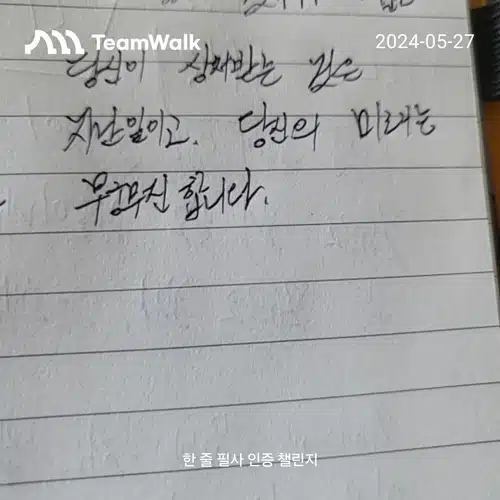 TeamWalk
2024-05-27
당신이 상처받는 것은
지난일이고. 당신의 미래는
무궁무진 합니다.
한 줄 필사 인증 챌린지